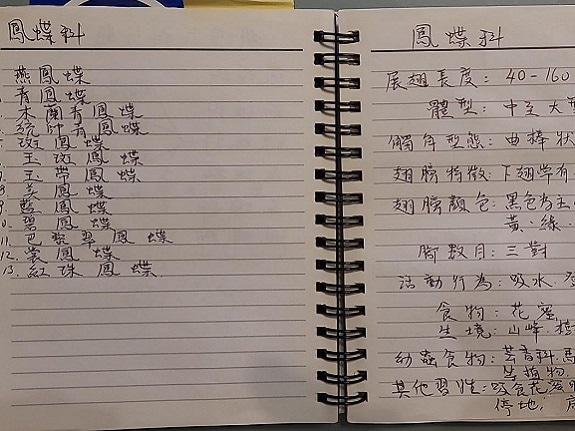 鳳蝶科
燕鳳蝶
青鳳蝶
木蘭青鳳蝶
統帥青鳳蝶
斑鳳蝶
玉斑鳳蝶
玉帶鳳蝶
美鳳蝶
藍鳳蝶
碧鳳蝶
11. 巴黎翠鳳蝶
12. 裳鳳蝶
13. 紅珠鳳蝶
鳳蝶科
展翅長度：40-160
體型：中至大型
觸角型態：曲棒狀
翅膀特徵：下翅常有
翅膀顏色：黑色為主
黃．綠．
腳數目：三對
活動行為：吸水．
食物：花蜜
生境：山峰．
幼蟲食物：芸香科．馬
等植物．
其他習性：吸食花蜜
停地．